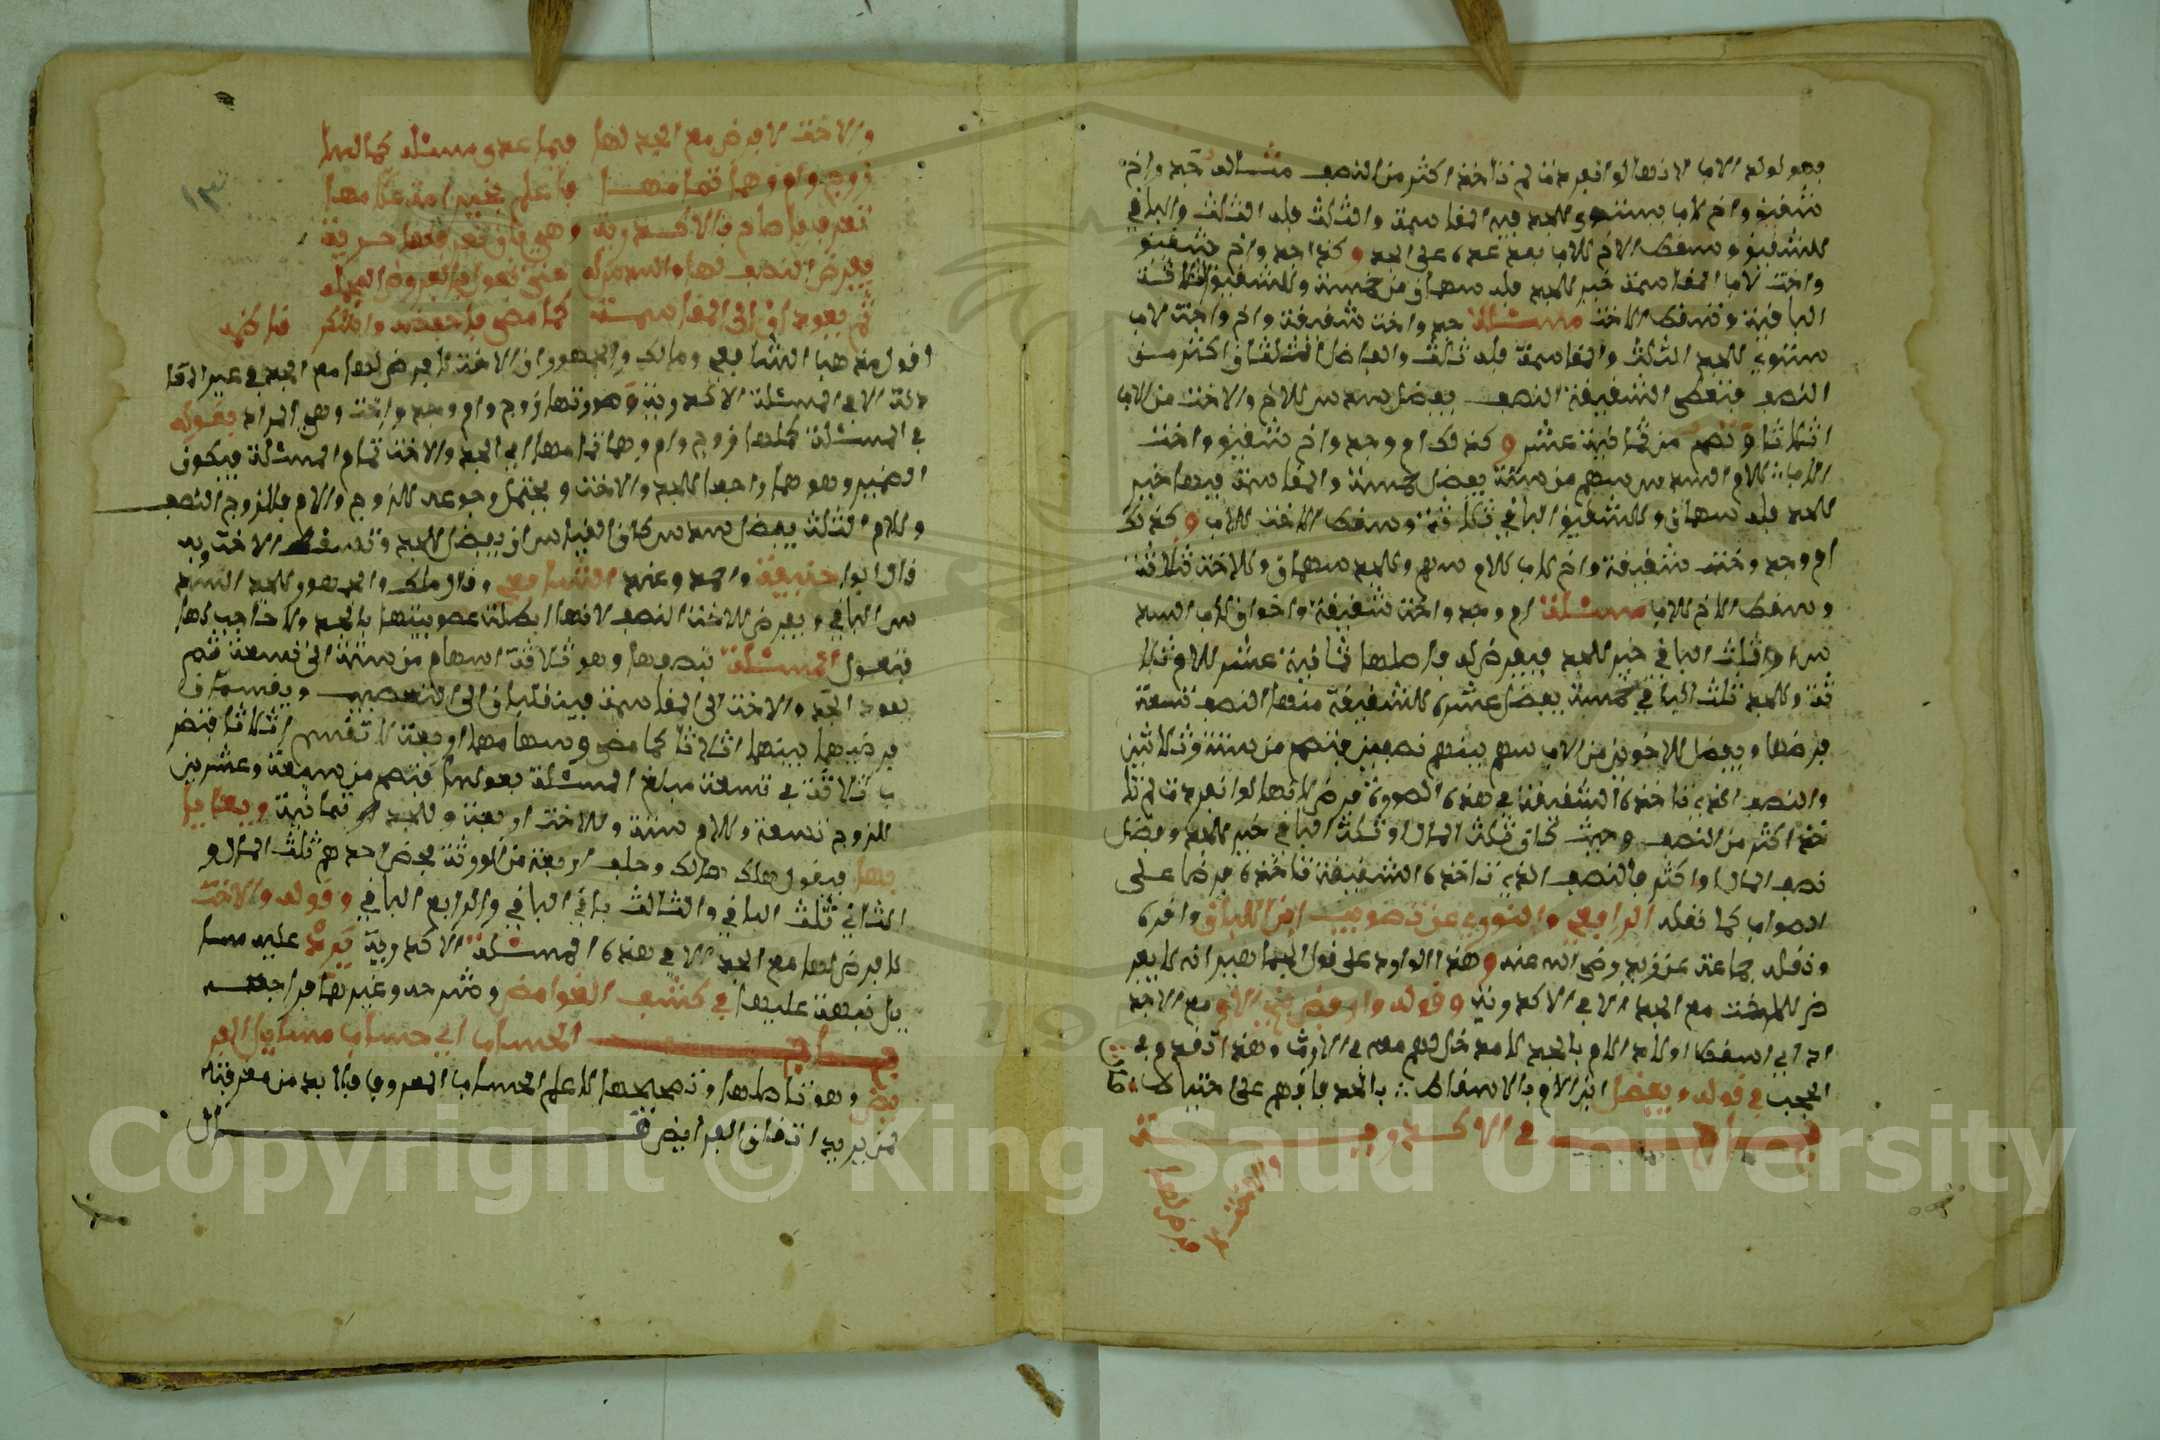 فهو لولد الاب لانها لو انفردت لم تاخذ اكثر من النصف مثاله جد واخ
شقيق واخ لاب يستوي للجد فيه المقاسمة والثلث فله الثلث والباقي
للشقيق وسقط الاخ للاب بعد عده على الجد وكذا جد واخ شقيق
واخت لاب المقاسمة خير للجد فله سهمان من خمسة وللشقيق الثلاثة
الباقية وتسقط الاخت مسئلة جد واخت شقيقة واخ واخت لاب
ستوي للجد الثلث والمقاسمة فله ثالث والفاضل الثلثان اكثر من
النصف فتعطى الشقيقة النصف يفضل سدس للاخ والاخت من الاب
اثلاثا وتصح من ثمانية عشر وكذلك ام وجد واخ شقيق واخت
لاب للام السدس سهم من ستة يفضل خمسة والمقاسمة فيها خير
للجد فله سهمان وللشقيق الباقي ثلاثة وسقط الاخت للاب وكذلك
ام وجد وخت شقيقة واخ لاب للام سهم وللجد سهمان وللاخت ثلاثة
وسقط الاخ للاب مسئلة ام وجد واخت شقيقة واخوان لاب السد
س وثلث الباقي خير للجد فيفرض له فاصلها ثمانية عشر للام ثلا
ثة وللجد ثلث الباقي خمسة يفضل عشرة للشقيقة منها النصف تسعة
فرضا ويفضل للاخوين من الاب سهم بينهم نصفين فتصح من ستة وثلاثين
والنصف الذي تاخذه الشقيقة في هذه الصورة فرض لانها لو انفردت لم تا
خذ اكثر من النصف وحيث كان ثلث المال او ثلث الباقي خير للجد وفضل
نصف المال او اكثر فالنصف الذي تاخذه الشقيقة تاخذه فرضا على
الصواب كما نقله الرافعي والنووي عن تصويب ابن اللبان واقره
ونقله جماعة عن زيد رضي الله عنه وهذا الوارد على قول الجماهير انه لا يفر
ض للاخت مع الجد الا في الاكدرية وقوله وارفض بني الام مع الاجد
اد اي اسقط اولاد الام بالجد لا مدخل لهم معه في الارث وهذا تقدم في
الحجب في قوله ويفضل ابن الام بالاسقاط بالجد فافهم على احتياط
فصل في الاكدرية
والاخت لا
فرض لها
١٣
والاخت لا فرض مع الجد لها فيما عدى مسئلة كملها
زوج وام وهما تمامها فاعلم فخير امة علامها
تعرف يا صاح بالاكدرية وهي بان تعرفها حرية
فيفرض النصف لها والسدس له حتى تعول بالفروض المجمله
ثم يعودان الى المقاسمة كما مضى فاحفظه واشكر ناظمه
اقول مذهبا الشافعي ومالك والجمهور ان الاخت لا يفرض لها مع الجد في غير المعا
دلة الا في المسئلة الاكدرية وصورتها زوج وام وجد واخت وهي المراد بقوله
في المسئلة كملها زوج وام وهما تمامها اي الجد والاخت تمام المسئلة فيكون
الضمير وهو هما راجعا للجد والاخت ويحتمل رجوعه للزوج والام فللزوج النصف
وللام الثلث يفضل سدس كان القياس ان يفضل للجد وتسقط الاخت وبه
قال ابوا حنيفة واحمد وعند الشافعي وقال ملك والجمهور للجد السد
س الباقي ويفرض للاخت النصف لانها ابطلت عصوبتها بالجد ولا حاجب لها
فتعول المسئلة بنصفها وهو ثلاثة اسهام من ستة الى تسعة ثم
يعود الجد والاخت الى المقاسمة فينقلبان الى التعصيب ويقسمان
فرضيهما بينهما اثلاثا كما مضى وسهامهما اربعة لا تنقسم اثلاثا فتضر
ب ثلاثة في تسعة مبلغ المسئلة بعولها فتصح من سبعة وعشرين
للزوج تسعة وللام ستة وللاخت اربعة وللجد ثمانية ويعايا
بها فيقول هلك هالك وخلف اربعة من الورثة يخص احدهم ثلث المال و
الثاني ثلث الباقي والثالث باقي الباقي والرابع الباقي وقوله والاخت
لا فرض لها مع الجد الا في هذه المسئلة الاكدرية يرد عليه مسا
يل نبهت عليها في كشف الغوامض وشرحه وغيرهما فراجعه
باب الحساب اي حساب مسايل الفر
يض وهو تاصلها وتصحيحها لا علم الحساب المعروف فلا بد من معرفته
لمن يريد اتقان الفرايض قال